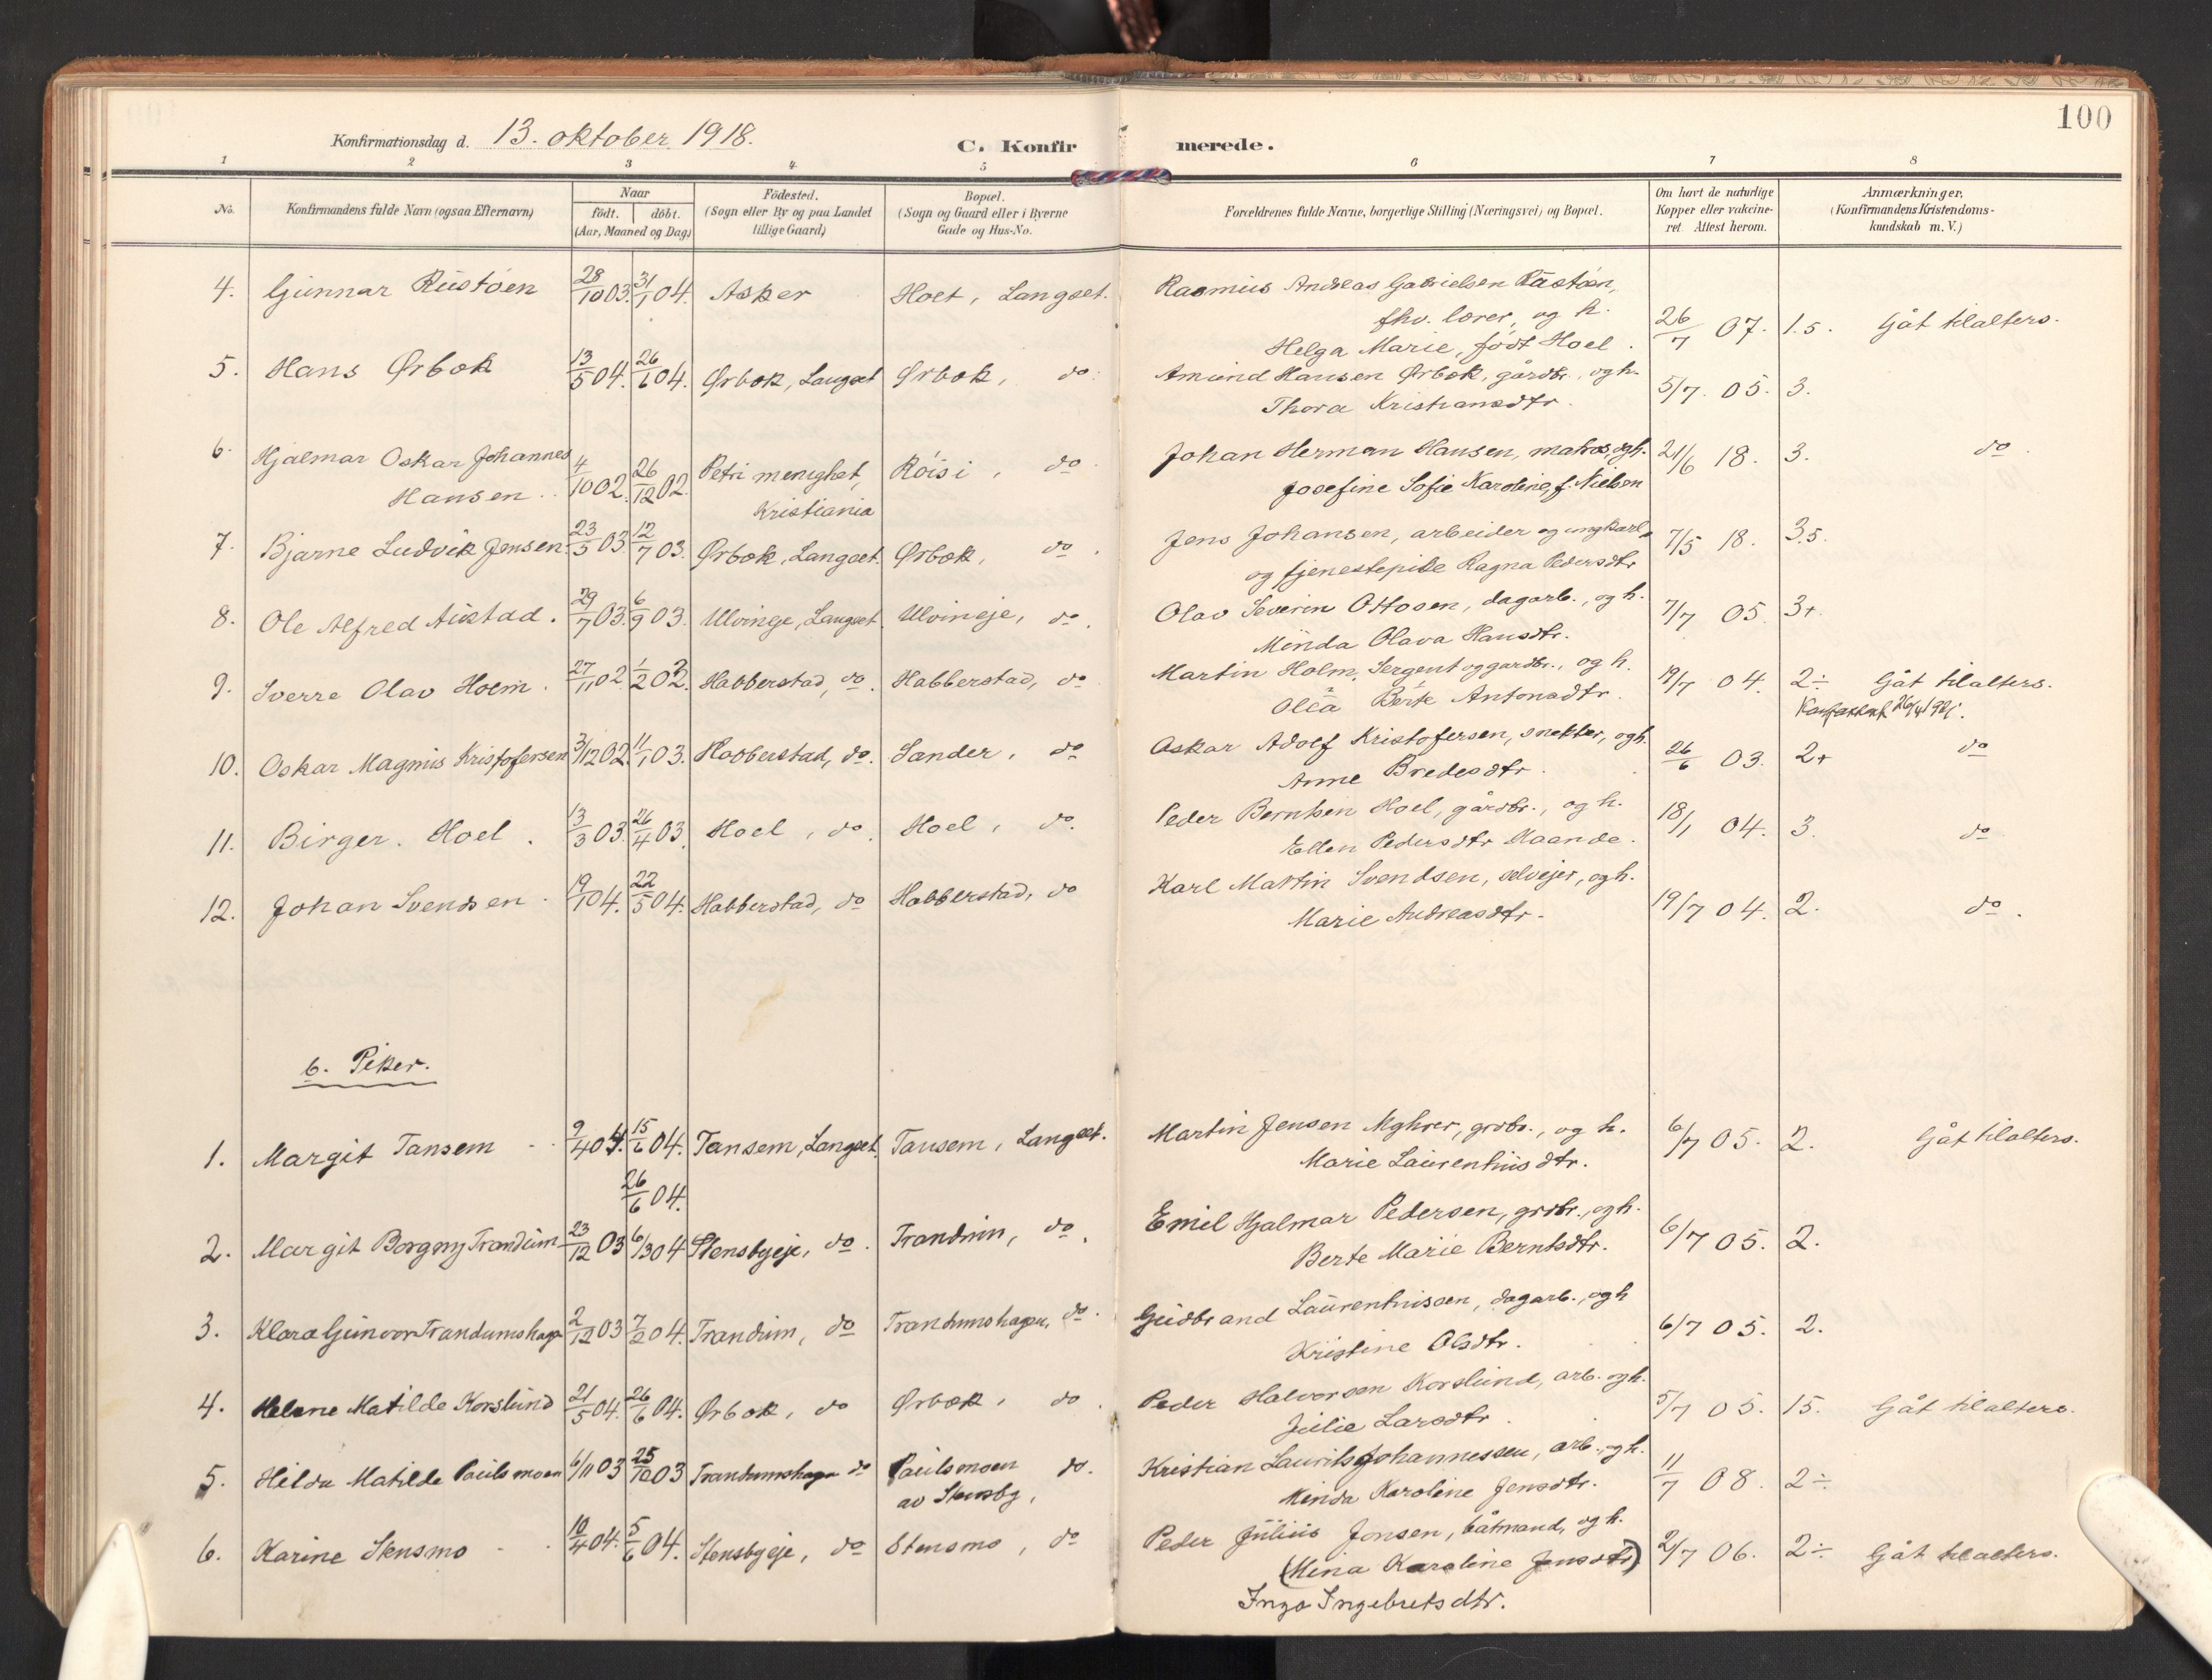 100
Konfirmationsdag d. 13. oktober 1918.
C. Konfirmerede.
1 2 3 4 5 6 7 8
No.
Konfirmandens fulde Navn (ogsaa Efternavn)
Naar
födt. döbt.
(Aar, Maaned og Dag)
Födested.
(Sogn eller By og paa Landet
tillige Gaard)
Bopæl.
(Sogn og Gaard eller i Byerne
Gade og Hus-No.
Forældrenes fulde Navne, borgerlige Stilling (Næringsvei) og Bopæl.
Om havt de naturlige
Kopper eller vakcine-
ret Attest herom.
Anmærkninger,
(Konfirmandens Kristendoms-
kundskab m. V.)
4. Gunnar Rustøen 28/10 03. 31/1 04. Asker Hoel, Langset. Rasmus Andreas Gabrielsen Rustøen,
fhv. lærer, og h.
Helga Marie, født Hoel. 26/7 07. 1.5. Gåt tilalters.
5. Hans Ørbæk 13/5 04. 26/6 04. Ørbæk, Langset Ørbæk, do. Amund Hansen Ørbæk, gårdbr., og h.
Thora Kristiansdtr. 5/7. 05. 3.
6. Hjalmar Oskar Johannes
Hansen. 4/10 02. 26/12 02. Petri menighet,
Kristiania Röisi, do. Johan Herman Hansen, matros, og h.
Josefine Sofie Karoline, f. Nielsen 21/6 18. 3. do.
7. Bjarne Ludvik Jensen. 23/5 03 12/7 03. Ørbæk, Langset. Ørbæk, do. Jens Johansen, arbeider og ungkarl,
og tjenestepike Ragna Pedersdtr 7/5 18. 3.5.
8. Ole Alfred Austad. 29/7 03. 6/9 03. Ulvineje, Langset. Ulvineje, do. Olav Severin Ottosen, dagarb., og h.
Minda Olava Hansdtr. 7/7 05. 3+.
9. Sverre Olav Holm. 27/11 02. 1/2 03. Habberstad, do. Habberstad, do Martin Holm, Sergent og gardbr., og h.
Olea Berte Antonsdtr. 19/7 04. 2÷ Gåt tilalters.
26/4 192
10. Oskar Magnus Kristofersen 3/12 02. 11/1 03. Habberstad, do. Sander, do Oskar Adolf Kristofersen, snekker, og h.
Anne Bredesdtr. 26/6 03. 2+ do
11. Birger Hoel. 13/3 03. 26/4 03. Hoel, do. Hoel, do. Peder Berntsen Hoel, gårdbr., og h.
Ellen Pedersdtr Maande. 18/1 04. 3. do
12. Johan Svendsen. 19/1 04. 22/5 04. Habberstad, do Habberstad, do Karl Martin Svendsen, selvejer, og h.
Marie Andreasdtr. 19/7 04. 2. do.
b. Piker.
1. Margit Tansem 9/4 04. 15/6 04. Tansem, Langset. Tansem, Langset. Martin Jensen Myhrer, grdbr., og h.
Marie Laurentiusdtr. 6/7 05. 2. Gåt tilalters.
26/6 04.
2. Margit Borgny Trandum 23/12 03 6/3 04 Stensbyeje, do. Trandum, do. Emil Hjalmar Pedersen, grdbr., og h.
Berte Marie Berntsdtr. 6/7 05. 2.
3. Klara Gunvor Trandumshagen 2/12 03 7/2 04. Trandum, do Trandumshagen, do. Gudbrand Laurentiussen, dagarb., og h
Kristine Olsdtr. 6/7 05. 2.
4. Helene Matilde Korslund 21/5 04. 26/6 04. Ørbæk, do Ørbæk, do. Peder Halvorsen Korslund, arb. og h.
Julie Larsdtr. 5/7 05. 15. Gåt tilalters.
5. Hilda Matilde Paulsmoen 6/11 03 25/12 03 Trandumshagen do Paulsmoen
av Stensby, do. Kristian Laurits Johannessen, arb., og h.
Minda Karoline Jensdtr. 11/7 08. 2÷
6. Karine Stensmo 10/4 04. 5/6 04. Stensbyeje, do Stensmo, do Peder Julius Jensen, båtmand, og h.
(Mina Karoline Jensdtr)
Inga Ingebretsdtr. 2/7 06. 2÷ Gåt tilalters.